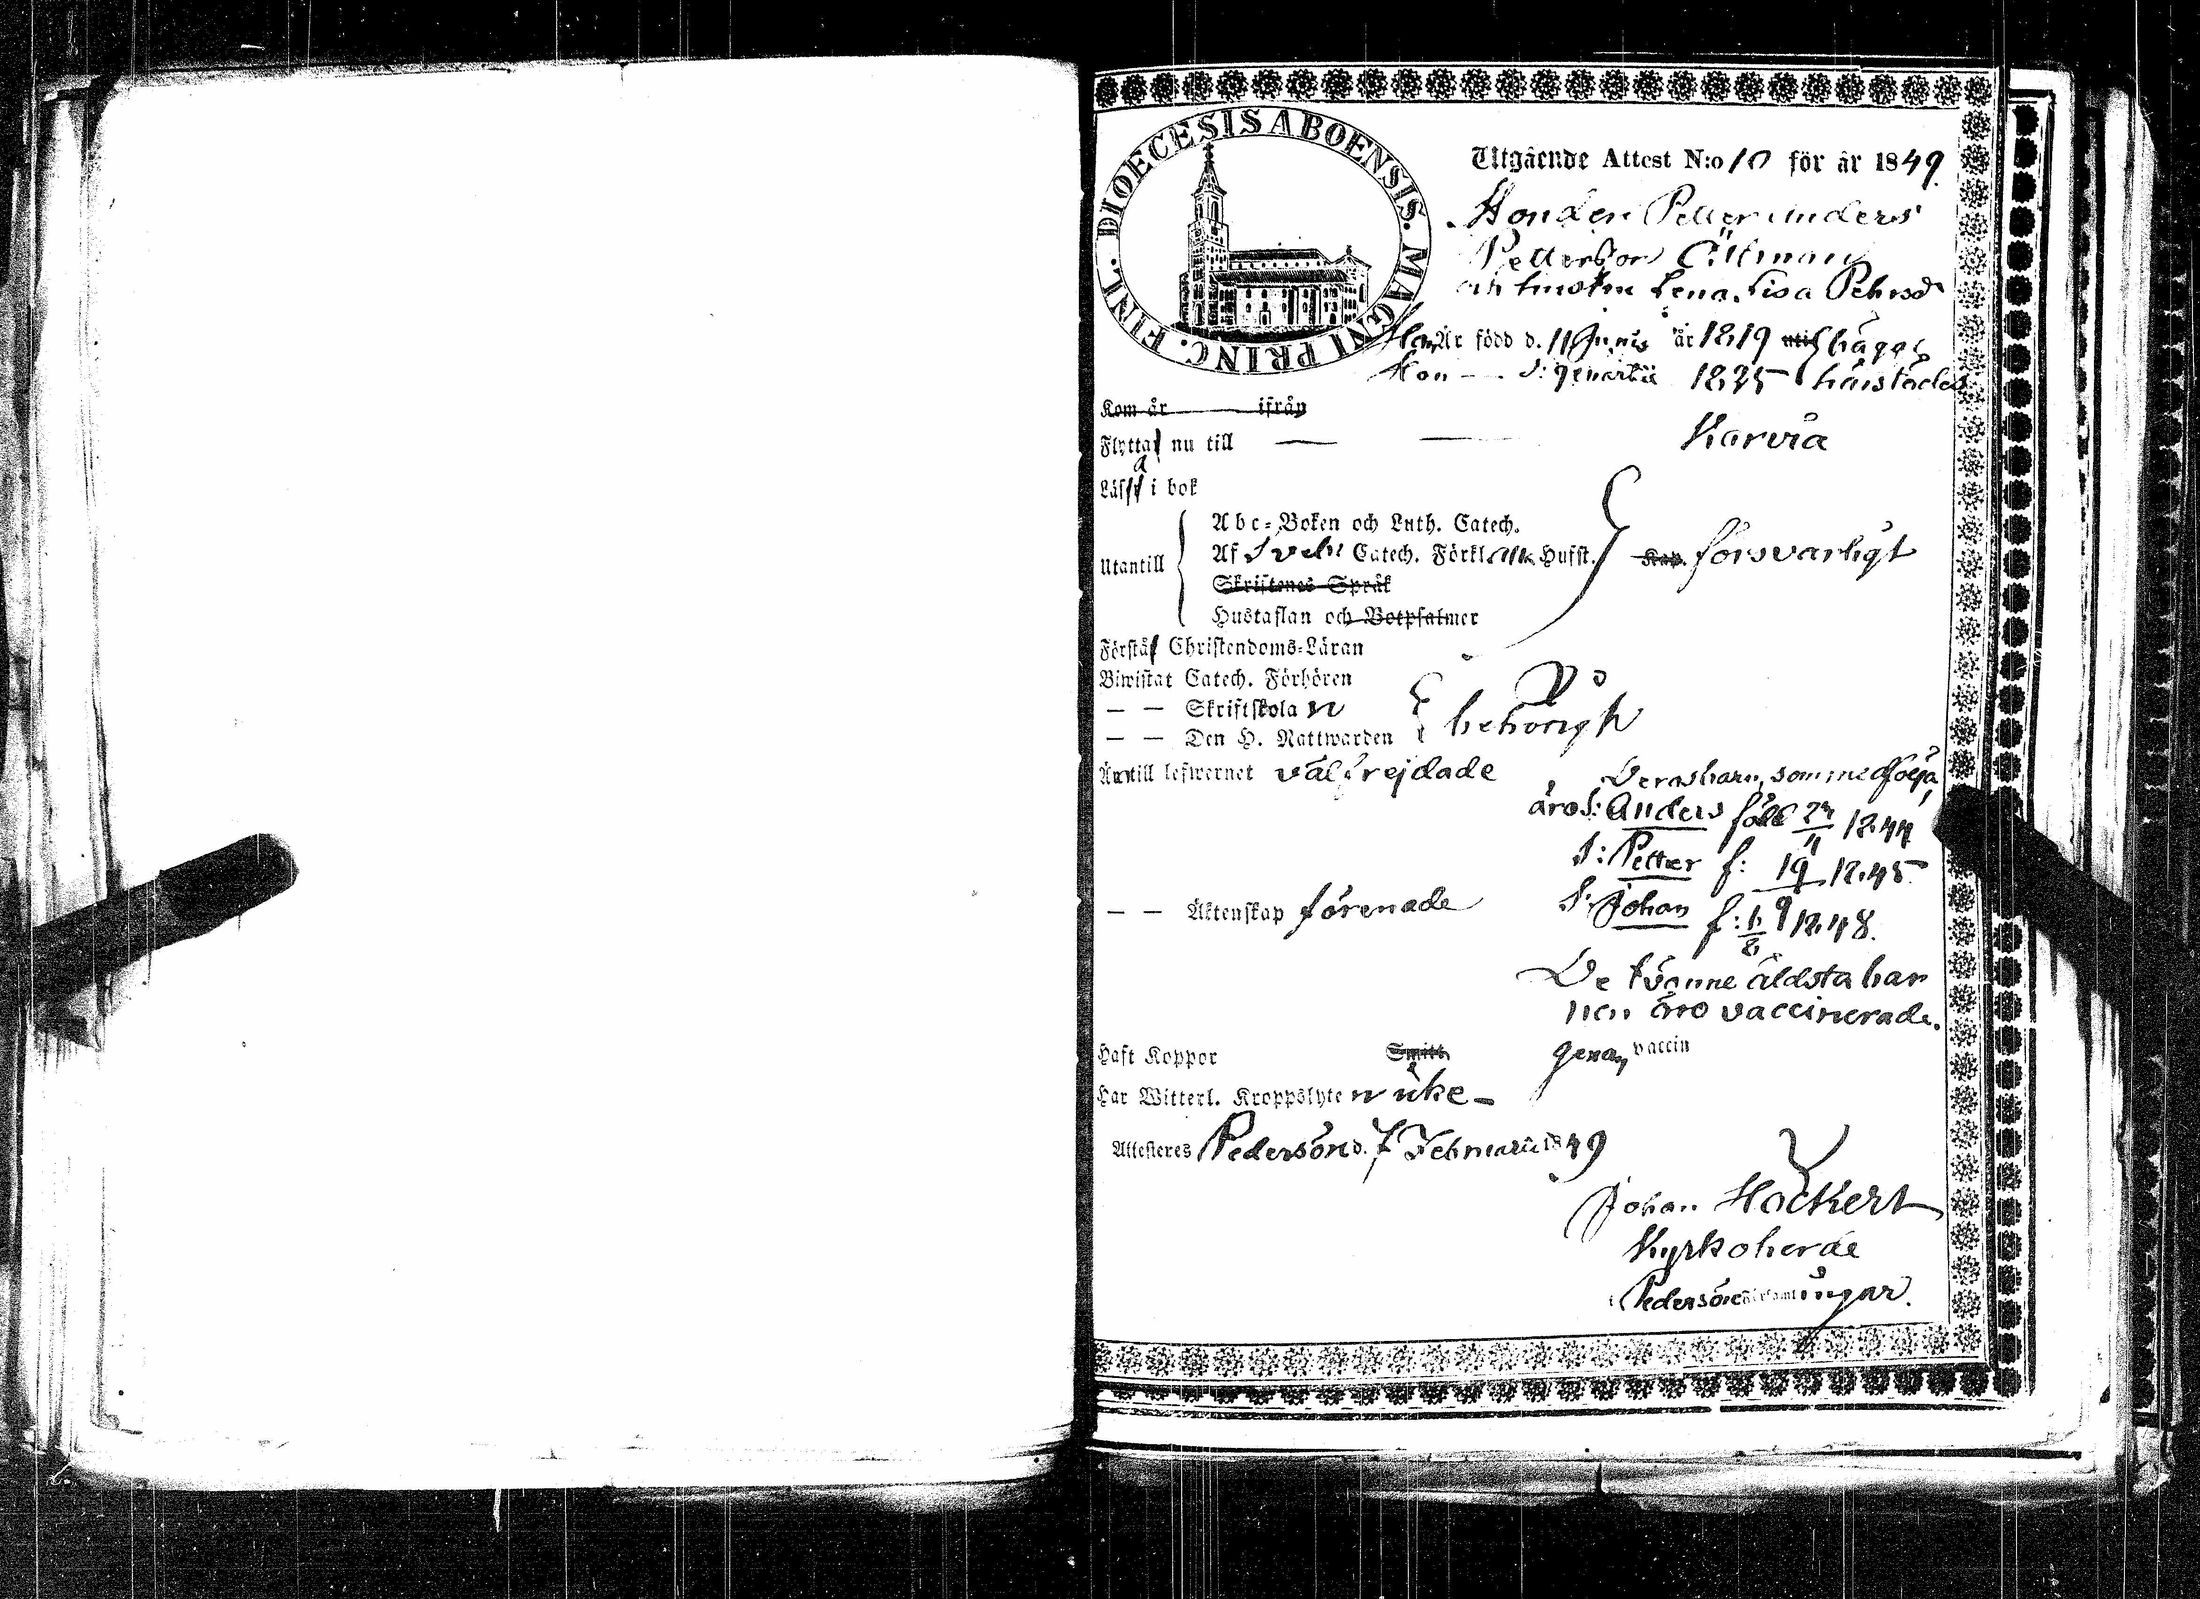 DIOECESIS ABOENSIS. MAGNI PRINC. FINL.
Utgående Attest N:o 10 för år 1849.
Bonden Petter Anders
Petterson Öllman
och hustru Lena Lisa Pehrsd
Han, Är född d. 11 Junii år 1819 uti bägge
Hon — d: 9 1825 härstädes
Kom år ifrån
Flytta nu till — — Karvia
a
Läsa i bok
Utantill
Abc-Boken och Luth. Catech.
Af Sveb: Catech. Förkl. Husst. Kap. försvarligt
Skriftenes Språk
Hustaflan och Botpsalmer
Förstå Christendoms-Läran
Biwistat Catech. Förhören
— — Skriftskola n
— — Den H. Nattwarden behörigt
Äro till lefwernet välfrejdade
Deras barn, som medfölja,
äro S: Anders född 1844
S: Petter f: 19 1845.
— — Äktenskap förenade
S: Johan f: 1848.
De tvänne äldsta bar
nen äro vaccinerade.
Haft Koppor Smitt genom vaccin
Har Witterl. Kroppslyte n icke –
Attesteres Pedersöre d. 7 Februarii 1849
Johan Hockert
Kyrkoherde
i Pedersöre Församlingar.